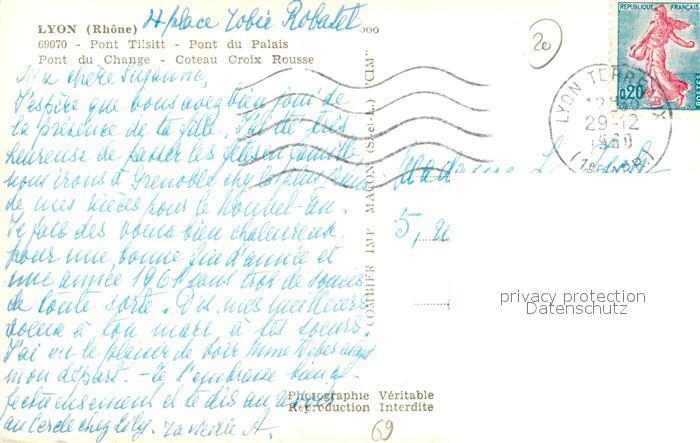 4 place Tobie Robatel
LYON (Rhône)
69070 - Pont Tilsitt - Pont du Palais
Pont du Change - Coteau Croix Rousse
Ma chère Suzanne,
J'espère que vous avez bien joui de
la présence de ta fille. J'ai été très
heureuse de passer les fêtes en famille
nous irons à Grenoble chez la plus
de mes nièces pour le Nouvel-an.
Je fais des voeux bien chaleureux
pour une bonne fin d'année et
une année 1961 sans trop de soucis
de toute sorte. Dis mes meilleurs
voeux à ton mari à tes soeurs.
J'ai eu le plaisir de voir Mme avant
mon départ. - Je t'embrasse bien af-
fectueusement et te dis au revoir
au Cercle chez Lily. Ta vieille A.
COMBIER IMP. MACON (S.-et-L.) "CIM"
20
REPUBLIQUE FRANÇAISE
0,20
POSTES
LYON TERREAUX
29-12
1960
Madame
5,
privacy protection
Datenschutz
Photographie Véritable
Reproduction Interdite
69